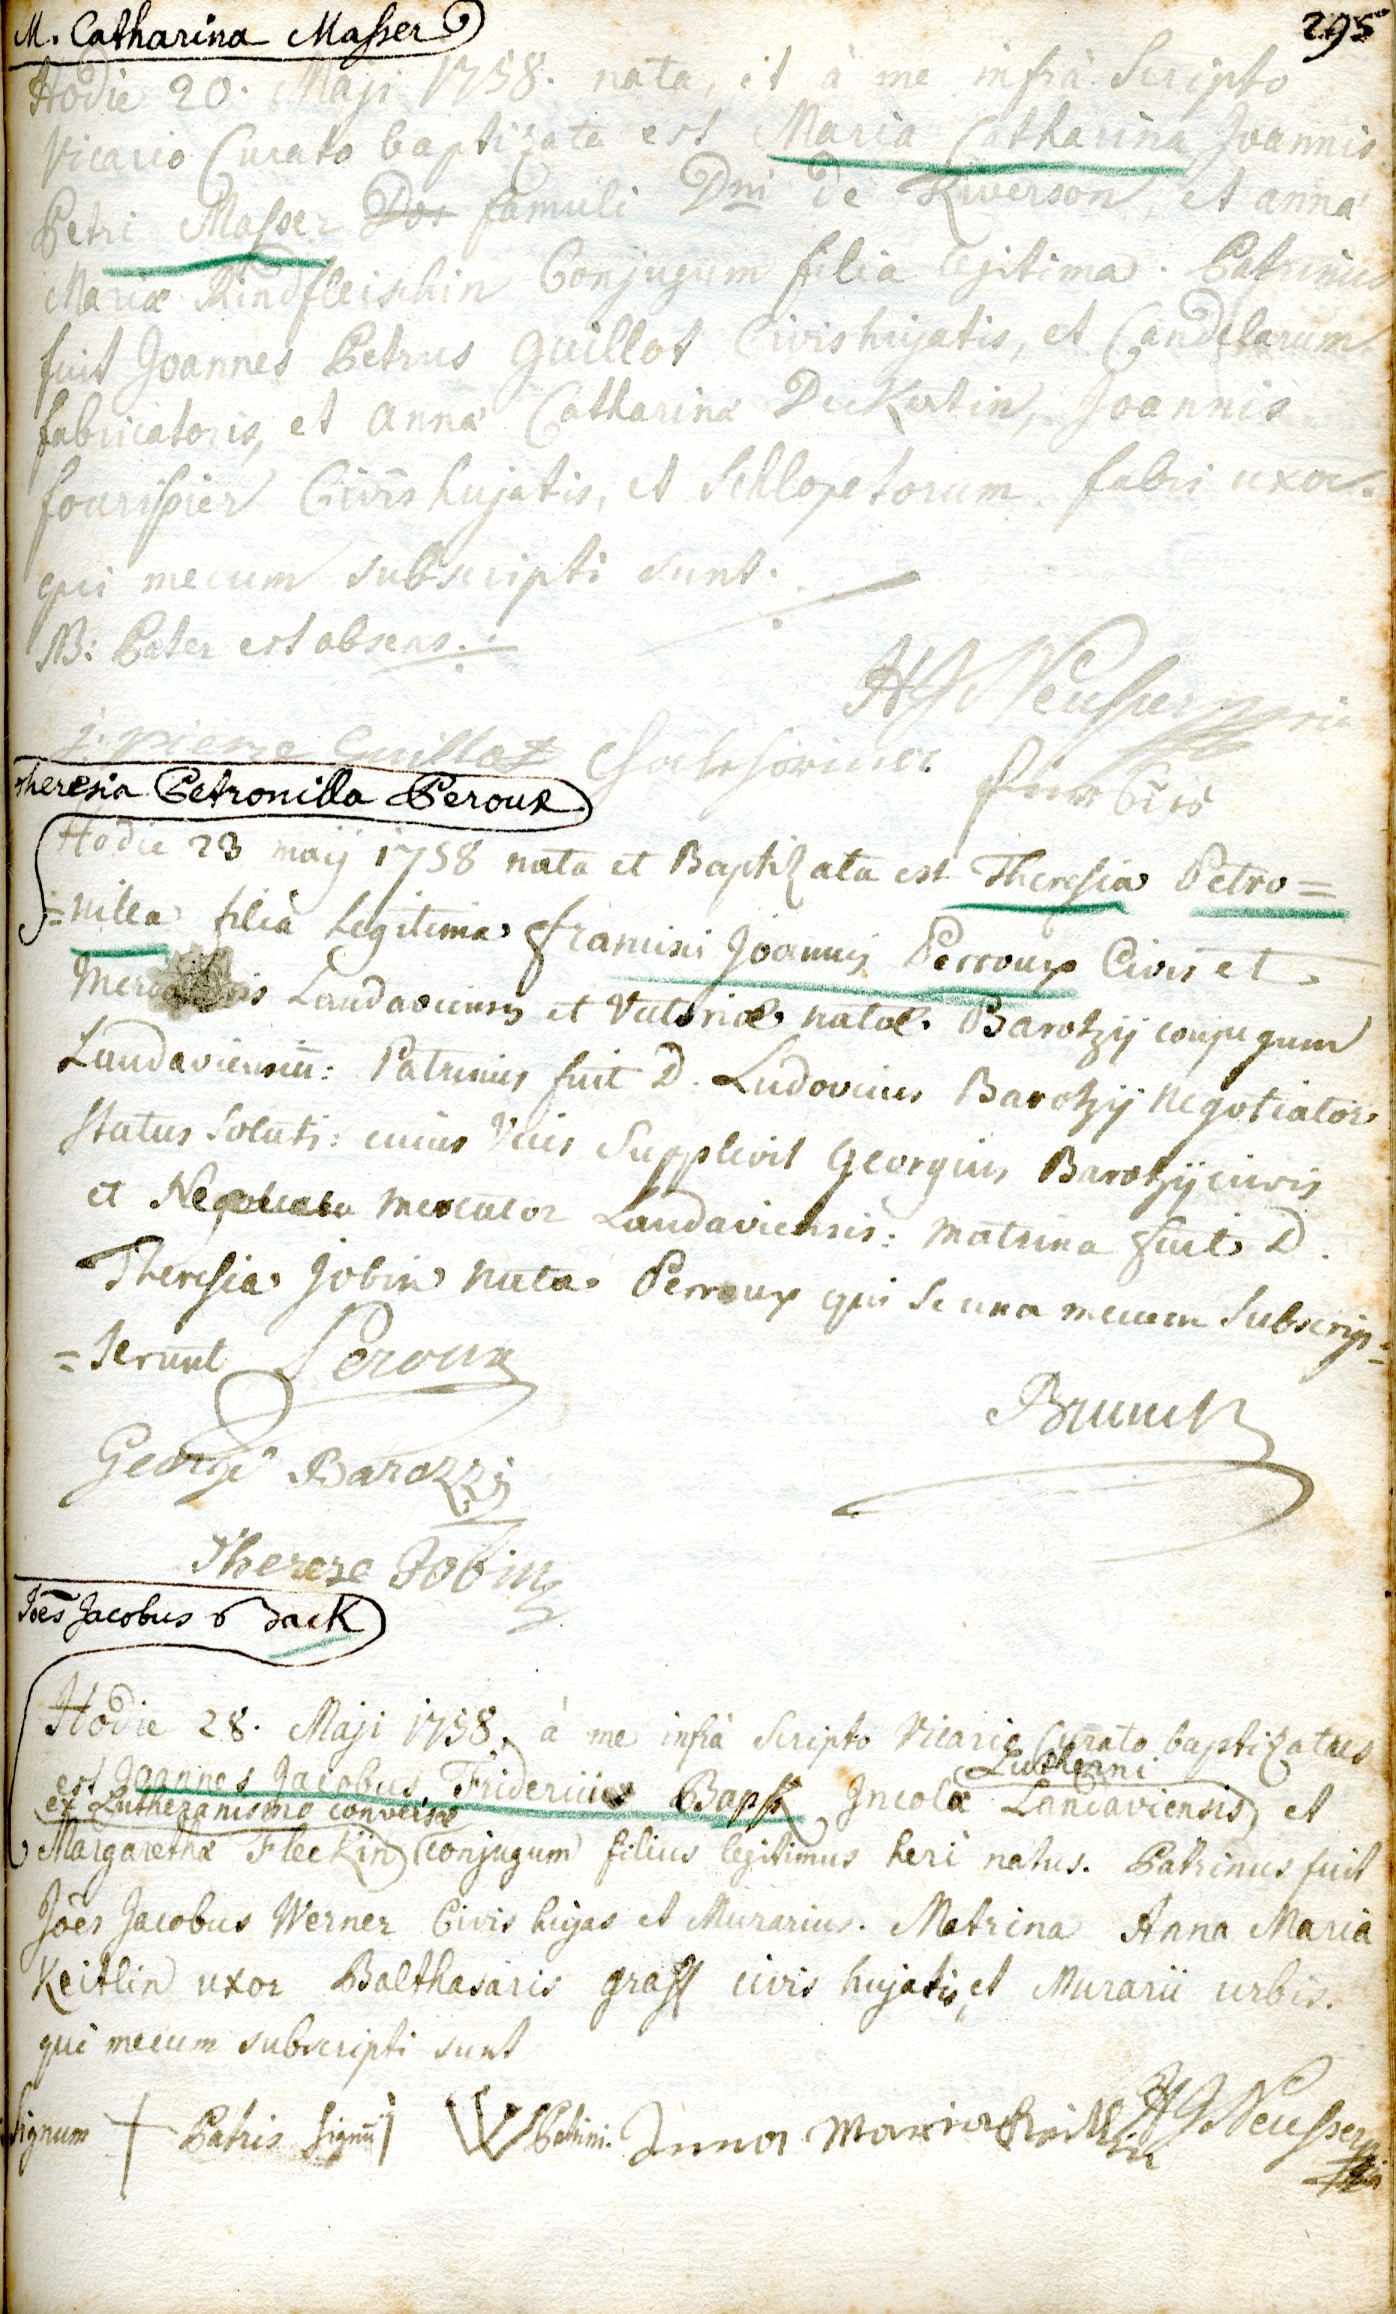 M. Catharina Masser
295
Hodie 20. Maji 1758. nata, et à me infrà Scripto
Vicario Curato baptizata est Maria Catharina Joannis
Petri Masser Dos famuli Dni de Riverson, et anna
Maria Rindfleischin Conjugum filia legitima. Patrinus
fuit Joannes Petrus Guillot Civis hujatis, et Candelarum
fabricatoris, et anna Catharina Deckertin, Joannis
fourissier Civis hujatis, et Schlopetorum fabri uxor.
qui mecum subscripti sunt.
NB: Pater est absens.
HJ Neusser
j. pierre Guillot
Theresia Petronilla Peroux
Hodie 23 maij 1758 nata et Baptizata est Theresia Petro=
=nilla filia Legitima Francisci Joannis Perroux Civis et
Mercatoris Landaviensis et Victoriae natae Barotzij conjugum
Landaviensiu: Patrinus fuit D. Ludovicus Barotzij Negotiator
status soluti: cuius Vices Supplevit Georgius Barotzij civis
et mercator Landaviensis: matrina fuit D.
Theresia Jobin nata Perroux qui se una mecum Subscrip=
=serunt Peroux
Brunck
George Barozzi
Therese Jobin
Joes Jacobus Back
Hodie 28. Maji 1758. à me infrà Scripto Vicario Curato baptizatus
Lutherani
est Joannes Jacobus Fridericus Bapp Incolae Landaviensis et
ex Lutheranismo conversae
Margarethae Fleckin conjugum filius legitimus heri natus. Patrinus fuit
Joes Jacobus Werner Civis hujas et Murarius. Matrina Anna Maria
Keitlin uxor Balthasaris graff civis hujatis, et Murarii urbis.
qui mecum subscripti sunt
Signum Patris Signu W Patrini. Anna Maria Keitlin HJ Neusser